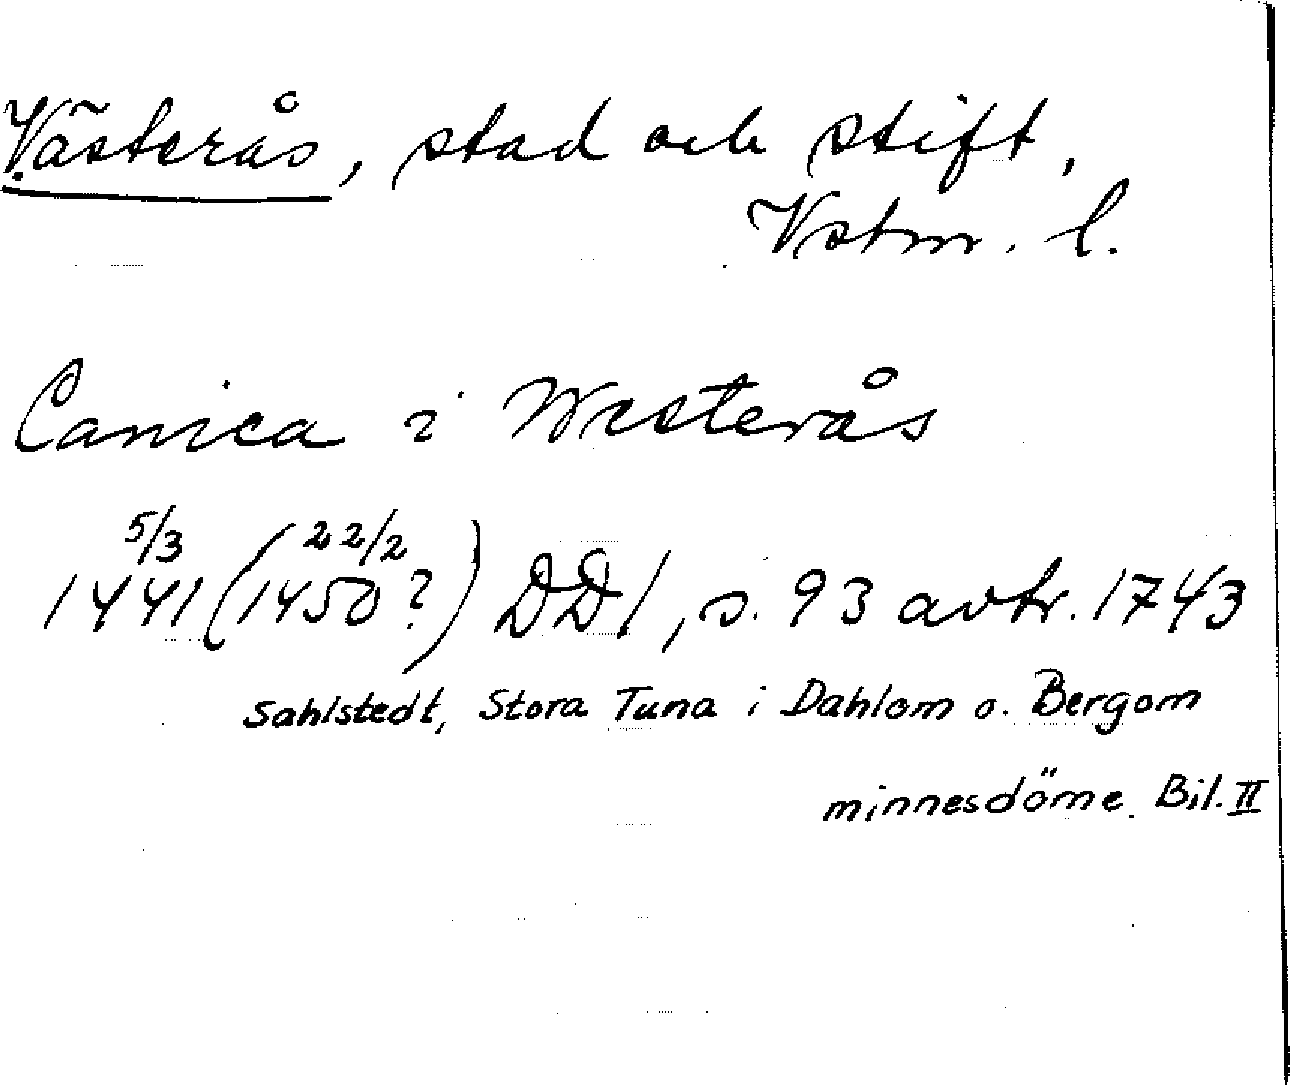 Västerås, stad och stift,
Vstm. l.
Canica i Westerås
5/3 22/2
1441 (1450?) DD1, s. 93 avtr. 1743
Sahlstedt, Stora Tuna i Dahlom o. Bergom
minnesdöme. Bil. II